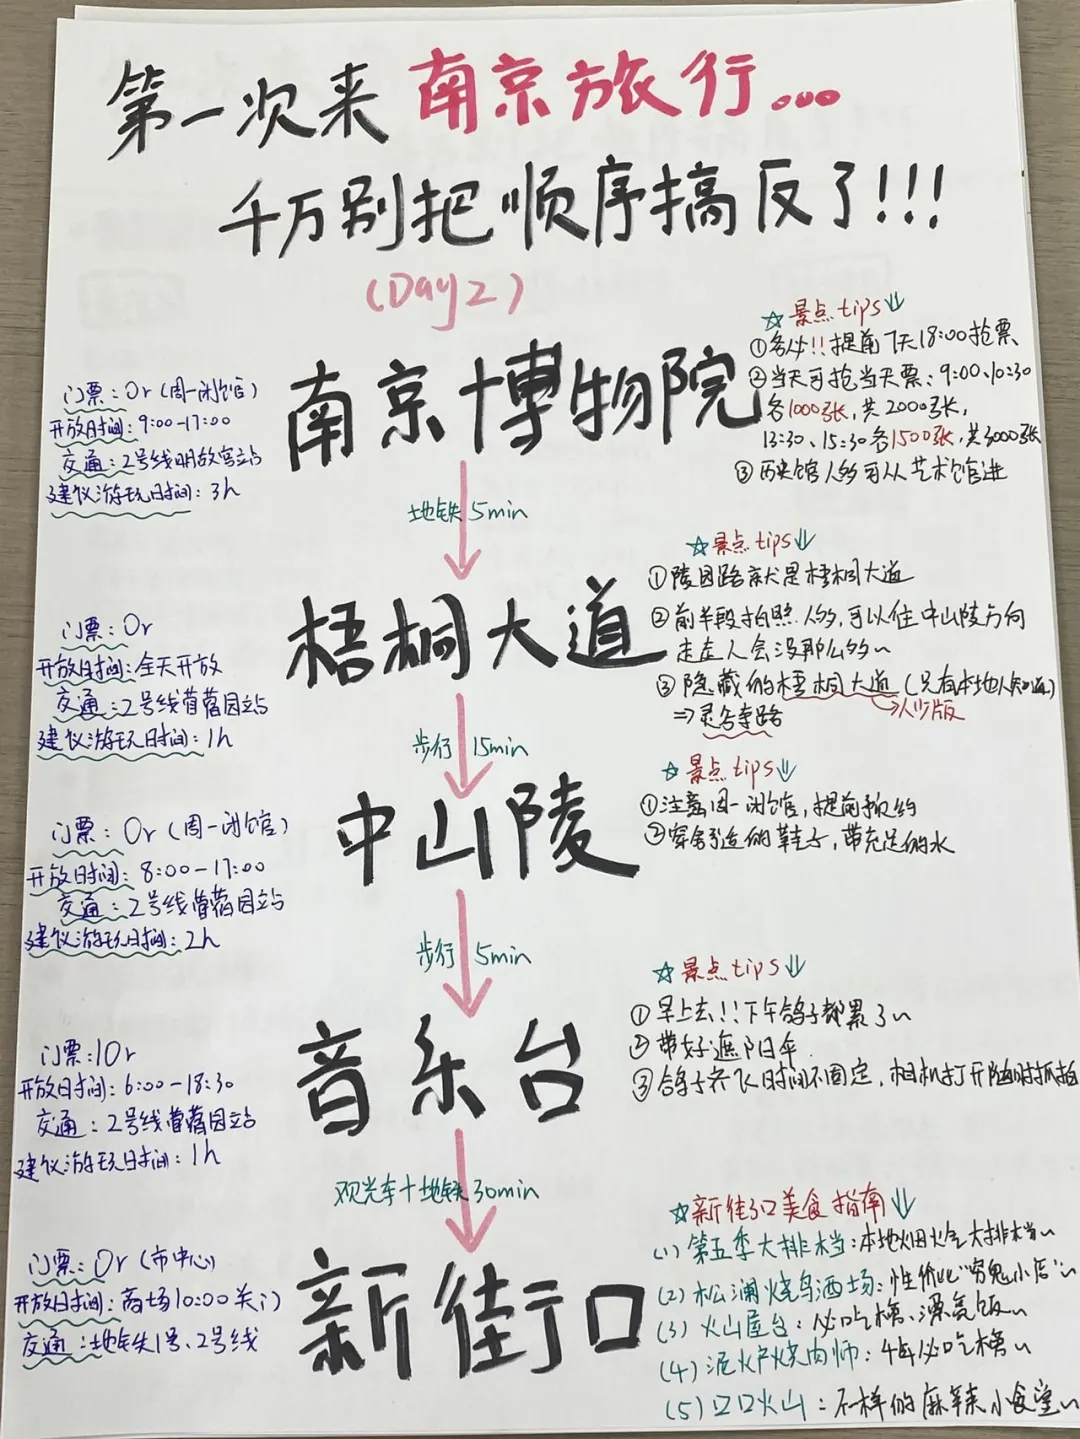 第一次来南京旅行...
千万别把顺序搞反了!!!
(Day2)
南京博物院
门票:0r(周一闭馆)
开放时间:9:00-17:00
交通:2号线明故宫站
建议游玩时间:3h
☆景点tips↓
①务必!!提前7天18:00抢票
②当天可抢当天票:9:00、10:30
各1000张,共2000张,
13:30、15:30各1500张,共3000张
③历史馆人多可从艺术馆进
地铁5min
梧桐大道
门票:0r
开放时间:全天开放
交通:2号线苜蓿园站
建议游玩时间:1h
☆景点tips↓
①陵园路就是梧桐大道
②前半段拍照人多,可以往中山陵方向
走走人会没那么多~
③隐藏的梧桐大道(只有本地人知道)
→人少版
⇒灵谷寺路
步行15min
中山陵
门票:0r(周一闭馆)
开放时间:8:00-17:00
交通:2号线苜蓿园站
建议游玩时间:2h
☆景点tips↓
①注意周一闭馆,提前预约
②穿舒适的鞋子,带充足的水
步行5min
音乐台
门票:10r
开放时间:6:00-18:30
交通:2号线苜蓿园站
建议游玩时间:1h
☆景点tips↓
①早上去!!下午鸽子都累了~
②带好遮阳伞
③鸽子齐飞时间不固定,相机打开随时抓拍
观光车+地铁30min
新街口
门票:0r(市中心)
开放时间:商场10:00关门
交通:地铁1号、2号线
☆新街口美食指南↓
(1)第五季大排档:本地烟火气大排档~
(2)松澜烧鸟酒场:性价比"穷鬼小店"~
(3)火山屋台:必吃榜、漂亮饭~
(4)泥炉烧肉师:4年必吃榜~
(5)口口火山:不一样的麻辣小食堂~